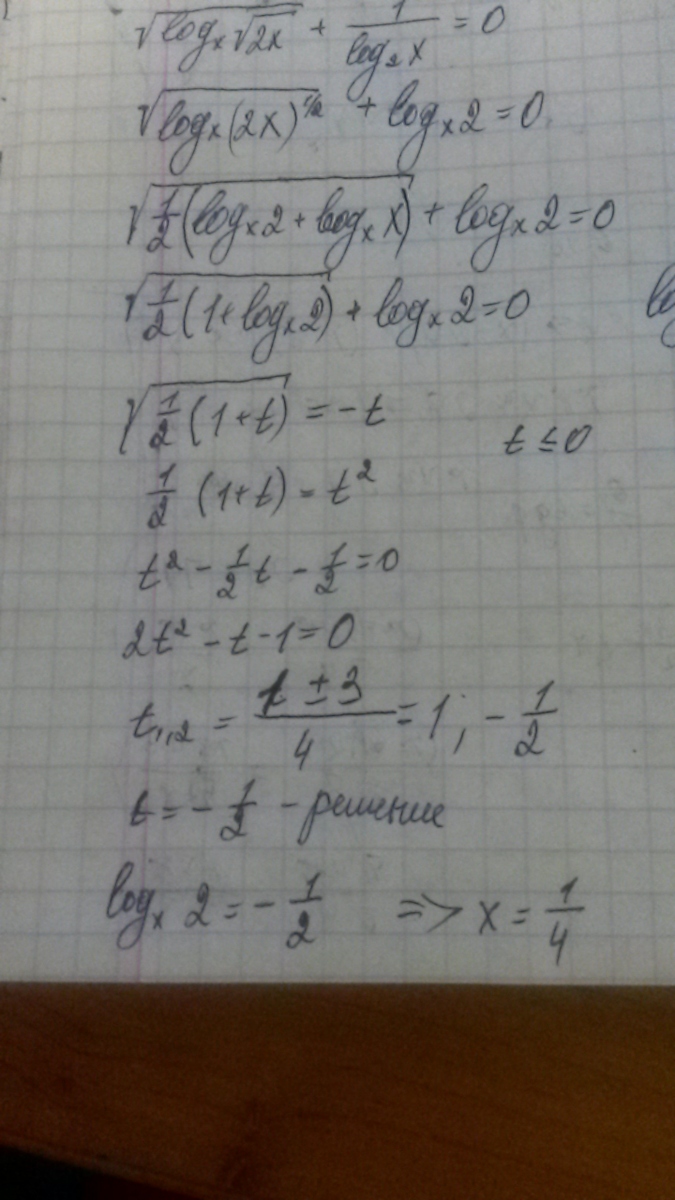 √(logₓ√(2x)) + 1/(log₂x) = 0
√(logₓ(2x)^(1/2)) + logₓ2 = 0
√(1/2(logₓ2 + logₓx)) + logₓ2 = 0
√(1/2(1 + logₓ2)) + logₓ2 = 0
√(1/2(1+t)) = -t t ≤ 0
1/2(1+t) = t²
t² - 1/2t - 1/2 = 0
2t² - t - 1 = 0
t₁,₂ = (1 ± 3)/4 = 1; -1/2
t = -1/2 - решение
logₓ2 = -1/2 => x = 1/4